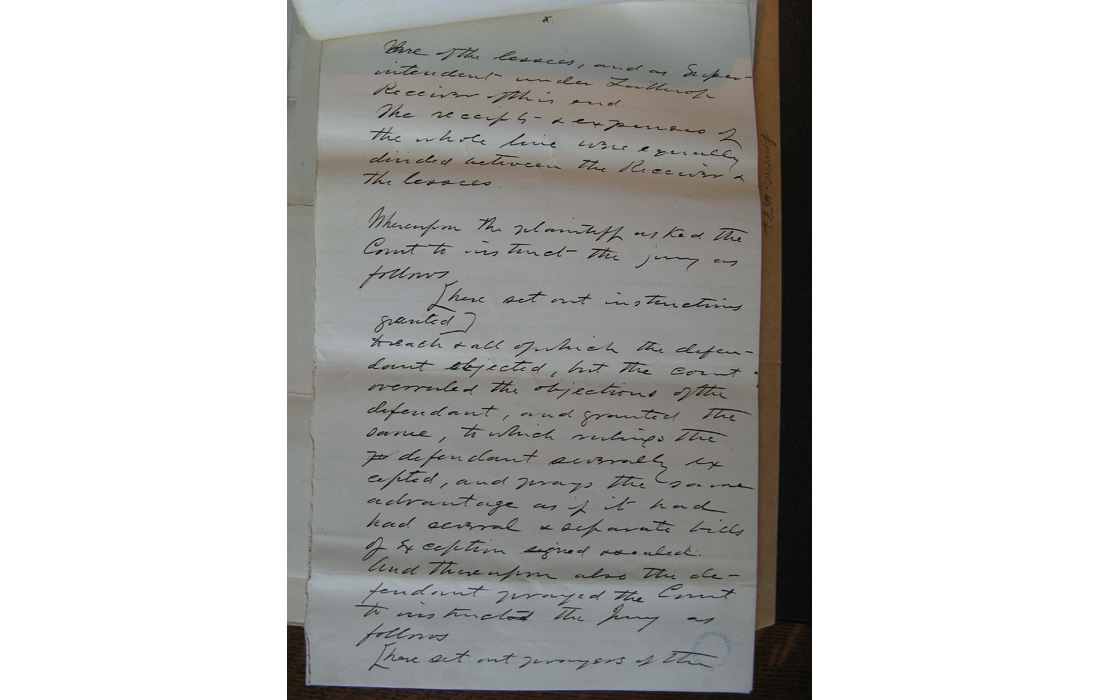 x
of the lessees, and as Super-
intendent under Lathrop
Receiver of this end.
The receipts & expenses of
the whole line were equally
divided between the Receiver &
the lessees.
Whereupon the plaintiff asked the
Court to instruct the jury as
follows
[here set out instructions
granted]
to each & all of which the defen-
dant objected, but the court
overruled the objections of the
defendant, and granted the
same, to which rulings the
defendant severally ex
cepted, and prays the same
advantage as if it had
had several & separate bills
of exception signed & sealed.
And thereupon also the de-
fendant prayed the Court
to instruct the Jury as
follows
[here set out prayers of the